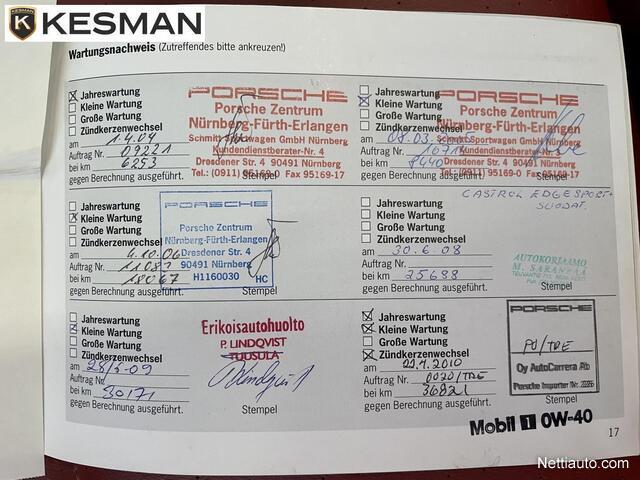 KESMAN
KESMAN
Wartungsnachweis (Zutreffendes bitte ankreuzen!)
Jahreswartung
Kleine Wartung
Große Wartung
Zündkerzenwechsel
am 1.4.04
Auftrag Nr. 09221
bei km 6253
gegen Berechnung ausgeführt.
PORSCHE
Porsche Zentrum
Nürnberg-Fürth-Erlangen
Schmitt Sportwagen GmbH Nürnberg
Kundendienstberater-Nr. 4
Dresdener Str. 4 90491 Nürnberg
Tel.: (0911) 95169-0 Fax 95169-17
Stempel
Jahreswartung
Kleine Wartung
Große Wartung
Zündkerzenwechsel
am 08.03.
Auftrag Nr.
bei km 8440
gegen Berechnung ausgeführt.
PORSCHE
Porsche Zentrum
Nürnberg-Fürth-Erlangen
Schmitt Sportwagen GmbH Nürnberg
Kundendienstberater-Nr.
Dresdener Str. 4 90491 Nürnberg
Tel.: (0911) 95169-0 Fax 95169-17
Stempel
Jahreswartung
Kleine Wartung
Große Wartung
Zündkerzenwechsel
am 4.10.06
Auftrag Nr. 11081
bei km 18067
gegen Berechnung ausgeführt.
PORSCHE
Porsche Zentrum
Nürnberg-Fürth-Erlangen
Dresdener Str. 4
90491 Nürnberg
H1160030 HC
Stempel
CASTROL EDGE SPORT +
SUODAT.
Jahreswartung
Kleine Wartung
Große Wartung
Zündkerzenwechsel
am 30.6.08
Auftrag Nr.
bei km 25688
gegen Berechnung ausgeführt.
AUTOKORJAAMO
Stempel
Jahreswartung
Kleine Wartung
Große Wartung
Zündkerzenwechsel
am 28/5-09
Auftrag Nr.
bei km 30171
gegen Berechnung ausgeführt.
Erikoisautohuolto
P. LINDQVIST
TUUSULA
Stempel
Jahreswartung
Kleine Wartung
Große Wartung
Zündkerzenwechsel
am 22.1.2010
Auftrag Nr. 0020/TRE
bei km 36821
gegen Berechnung ausgeführt.
PORSCHE
PO/TRE
Oy AutoCarrera Ab
Porsche Importer
Stempel
Mobil 1 0W-40
17
Nettiauto.com